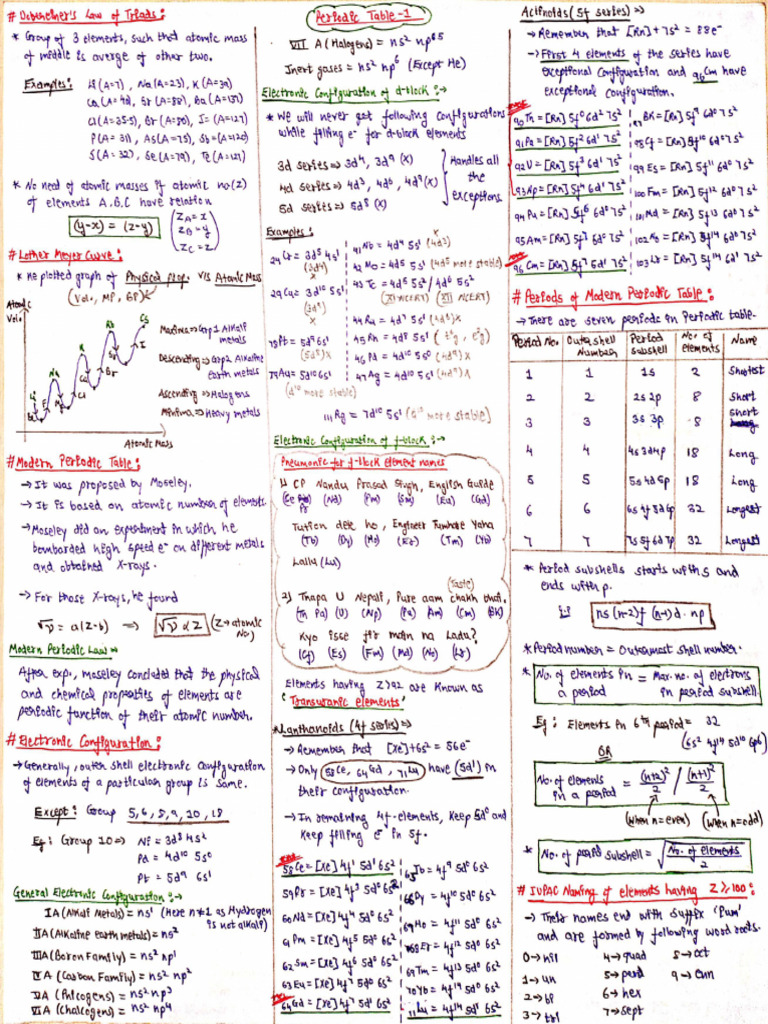 # Dobereiner's Law of Triads:
* Group of 3 elements, such that atomic mass
of middle is averge of other two.
Examples: Li (A=7) , Na (A=23), K (A=39)
Ca (A=40), Sr (A=88), Ba (A=137)
Cl (A=35.5), Br (A=80), I= (A=127)
P (A=31), As (A=75), Sb= (A=120)
S (A=32), Se (A=79), Te (A=127)
* No need of atomic masses if atomic no (z)
of elements A.B.C have relation
(y-x) = (z-y)
Z_A = x
Z_B = y
Z_C = z
# Lother Meyer Curve:
* He plotted graph of Physical Prop. v/s Atomic Mass
(Volu, MP, BP)
Atomic
Volu
Li
Na
K
Rb
Cs
Be
Mg
Al
Cl
Ca
Br
Sr
I
Maxima => Grp1 Alkali
metals
Descending => Grp2 Alkaline
earth metals
Ascending => Halogens
Minima => Heavy metals
Atomic Mass
# Modern Periodic Table:
→ It was proposed by Moseley.
→ It is based on atomic number of elements.
→ Moseley did an experiment in which he
bombarded high speed e⁻ on different metals
and obtained X-rays.
→ For those X-rays, he found
√ν = a(Z-b) => √ν ∝ Z (Z→atomic
No.)
Modern Periodic Law
After exp., Moseley concluded that the physical
and chemical properties of elements are
periodic function of their atomic number.
# Electronic Configuration:
→ Generally, outer shell electronic configuration
of elements of a particular group is same.
Except: Group 5,6,8,9,10,18
Eg: Group 10 => Ni = 3d⁸ 4s²
Pd = 4d¹⁰ 5s⁰
Pt = 5d⁹ 6s¹
General Electronic Configuration:→
IA (Alkali Metals) = ns¹ (Here n≠1 as Hydrogen
is not alkali)
IIA (Alkaline earth metals) = ns²
IIIA (Boron Family) = ns² np¹
IVA (Carbon Family) = ns² np²
VA (Pnicogens) = ns² np³
VIA (Chalcogens) = ns² np⁴
Periodic Table-1
VII A (Halogens) = ns² np⁵
Inert gases = ns² np⁶ (Except He)
Electronic Configuration of d-block:→
* We will never get following configurations
while filling e⁻ for d-block elements
3d series => 3d⁴, 3d⁹ (X)
4d series => 4d³, 4d⁰, 4d⁹ (X)
5d series => 5d⁸ (X)
Handles all
the
exceptions
Examples:
24Cr = 3d⁵ 4s¹
(3d⁴)
X
29Cu = 3d¹⁰ 4s¹
(3d⁹)
X
78Pt = 5d⁹ 6s¹
(5d⁸) X
79Au = 5d¹⁰ 6s¹
(d¹⁰ more stable)
41Nb = 4d⁴ 5s¹ (4d³)
42Mo = 4d⁵ 5s¹ (4d⁵ more stable)
43Tc = 4d⁵ 5s² / 4d⁶ 5s¹
(XI NCERT) (XII NCERT)
44Ru = 4d⁷ 5s¹
45Rh = 4d⁸ 5s¹
46Pd = 4d¹⁰ 5s⁰ (4d⁹) X
47Ag = 4d¹⁰ 5s¹ (4d⁹) X
111Rg = 7d¹⁰ 5s¹ (d¹⁰ more stable)
Electronic Configuration of f-block:→
Pneumonic for f-block element names
1) CP Nandu Prasad Singh, English Guide
(Ce Pr) (Nd) (Pm) (Sm) (Eu) (Gd)
Tution dete ho, Engineer Tumhare Yaha
(Tb) (Dy) (Ho) (Er) (Tm) (Yb)
Lallu (Lu)
(Taste)
2) Thapa U Nepali, Pure aam chakh thai.
(Th Pa) (U) (Np) (Pu) (Am) (Cm) (BK)
Kyo isse fir main na Ladu?
(Cf) (Es) (Fm) (Md) (No) (Lr)
Elements having Z>92 are known as
'Transuranic elements'
* Lanthanoids (4f series) =>
→ Remember that [Xe]+6s² = 56e⁻
→ Only 58Ce, 64Gd, 71Lu have (5d¹) in
their configuration.
→ In remaining 4f-elements, keep 5d⁰ and
keep filling e⁻ in 5f.
58Ce = [Xe] 4f¹ 5d¹ 6s²
59Pr = [Xe] 4f³ 5d⁰ 6s²
60Nd = [Xe] 4f⁴ 5d⁰ 6s²
61Pm = [Xe] 4f⁵ 5d⁰ 6s²
62Sm = [Xe] 4f⁶ 5d⁰ 6s²
63Eu = [Xe] 4f⁷ 5d⁰ 6s²
64Gd = [Xe] 4f⁷ 5d¹ 6s²
65Tb = 4f⁹ 5d⁰ 6s²
66Dy = 4f¹⁰ 5d⁰ 6s²
67Ho = 4f¹¹ 5d⁰ 6s²
68Er = 4f¹² 5d⁰ 6s²
69Tm = 4f¹³ 5d⁰ 6s²
70Yb = 4f¹⁴ 5d⁰ 6s²
71Lu = 4f¹⁴ 5d¹ 6s²
Actinoids (5f series) =>
→ Remember that [Rn]+7s² = 88e⁻
→ First 4 elements of the series have
exceptional configuration and 96Cm have
exceptional configuration.
90Th = [Rn] 5f⁰ 6d² 7s²
91Pa = [Rn] 5f² 6d¹ 7s²
92U = [Rn] 5f³ 6d¹ 7s²
93Np = [Rn] 5f⁴ 6d¹ 7s²
94Pu = [Rn] 5f⁶ 6d⁰ 7s²
95Am = [Rn] 5f⁷ 6d⁰ 7s²
96Cm = [Rn] 5f⁷ 6d¹ 7s²
97BK = [Rn] 5f⁹ 6d⁰ 7s²
98Cf = [Rn] 5f¹⁰ 6d⁰ 7s²
99Es = [Rn] 5f¹¹ 6d⁰ 7s²
100Fm = [Rn] 5f¹² 6d⁰ 7s²
101Md = [Rn] 5f¹³ 6d⁰ 7s²
102No = [Rn] 5f¹⁴ 6d⁰ 7s²
103Lr = [Rn] 5f¹⁴ 6d¹ 7s²
# Periods of Modern Periodic Table:
→ There are seven periods in Periodic table.
Period No. Outer shell Number Period subshell No. of elements Name
1 1 1s 2 Shotest
2 2 2s 2p 8 Short
3 3 3s 3p 8 Short
4 4 4s 3d 4p 18 Long
5 5 5s 4d 5p 18 Long
6 6 6s 4f 5d 6p 32 Longest
7 7 7s 5f 6d 7p 32 Longest
* Period subshells starts with s and
ends with p.
i.e ns (n-2)f (n-1)d. np
* Period number = Outermost shell number.
* No. of elements in a period = Max. no. of electrons in period subshell.
Eg: Elements in 6th period = 32
(6s² 4f¹⁴ 5d¹⁰ 6p⁶)
OR
No. of elements in a period = (n+2)²/2 / (n+1)²/2
(When n=even) (When n=odd)
* No. of period subshell = √(No. of elements / 2)
# IUPAC Naming of elements having Z≥100:
→ Their names end with suffix 'ium'
and are formed by following word roots.
0→nil 4→quad 8→oct
1→un 5→pent 9→enn
2→bi 6→hex
3→tri 7→sept